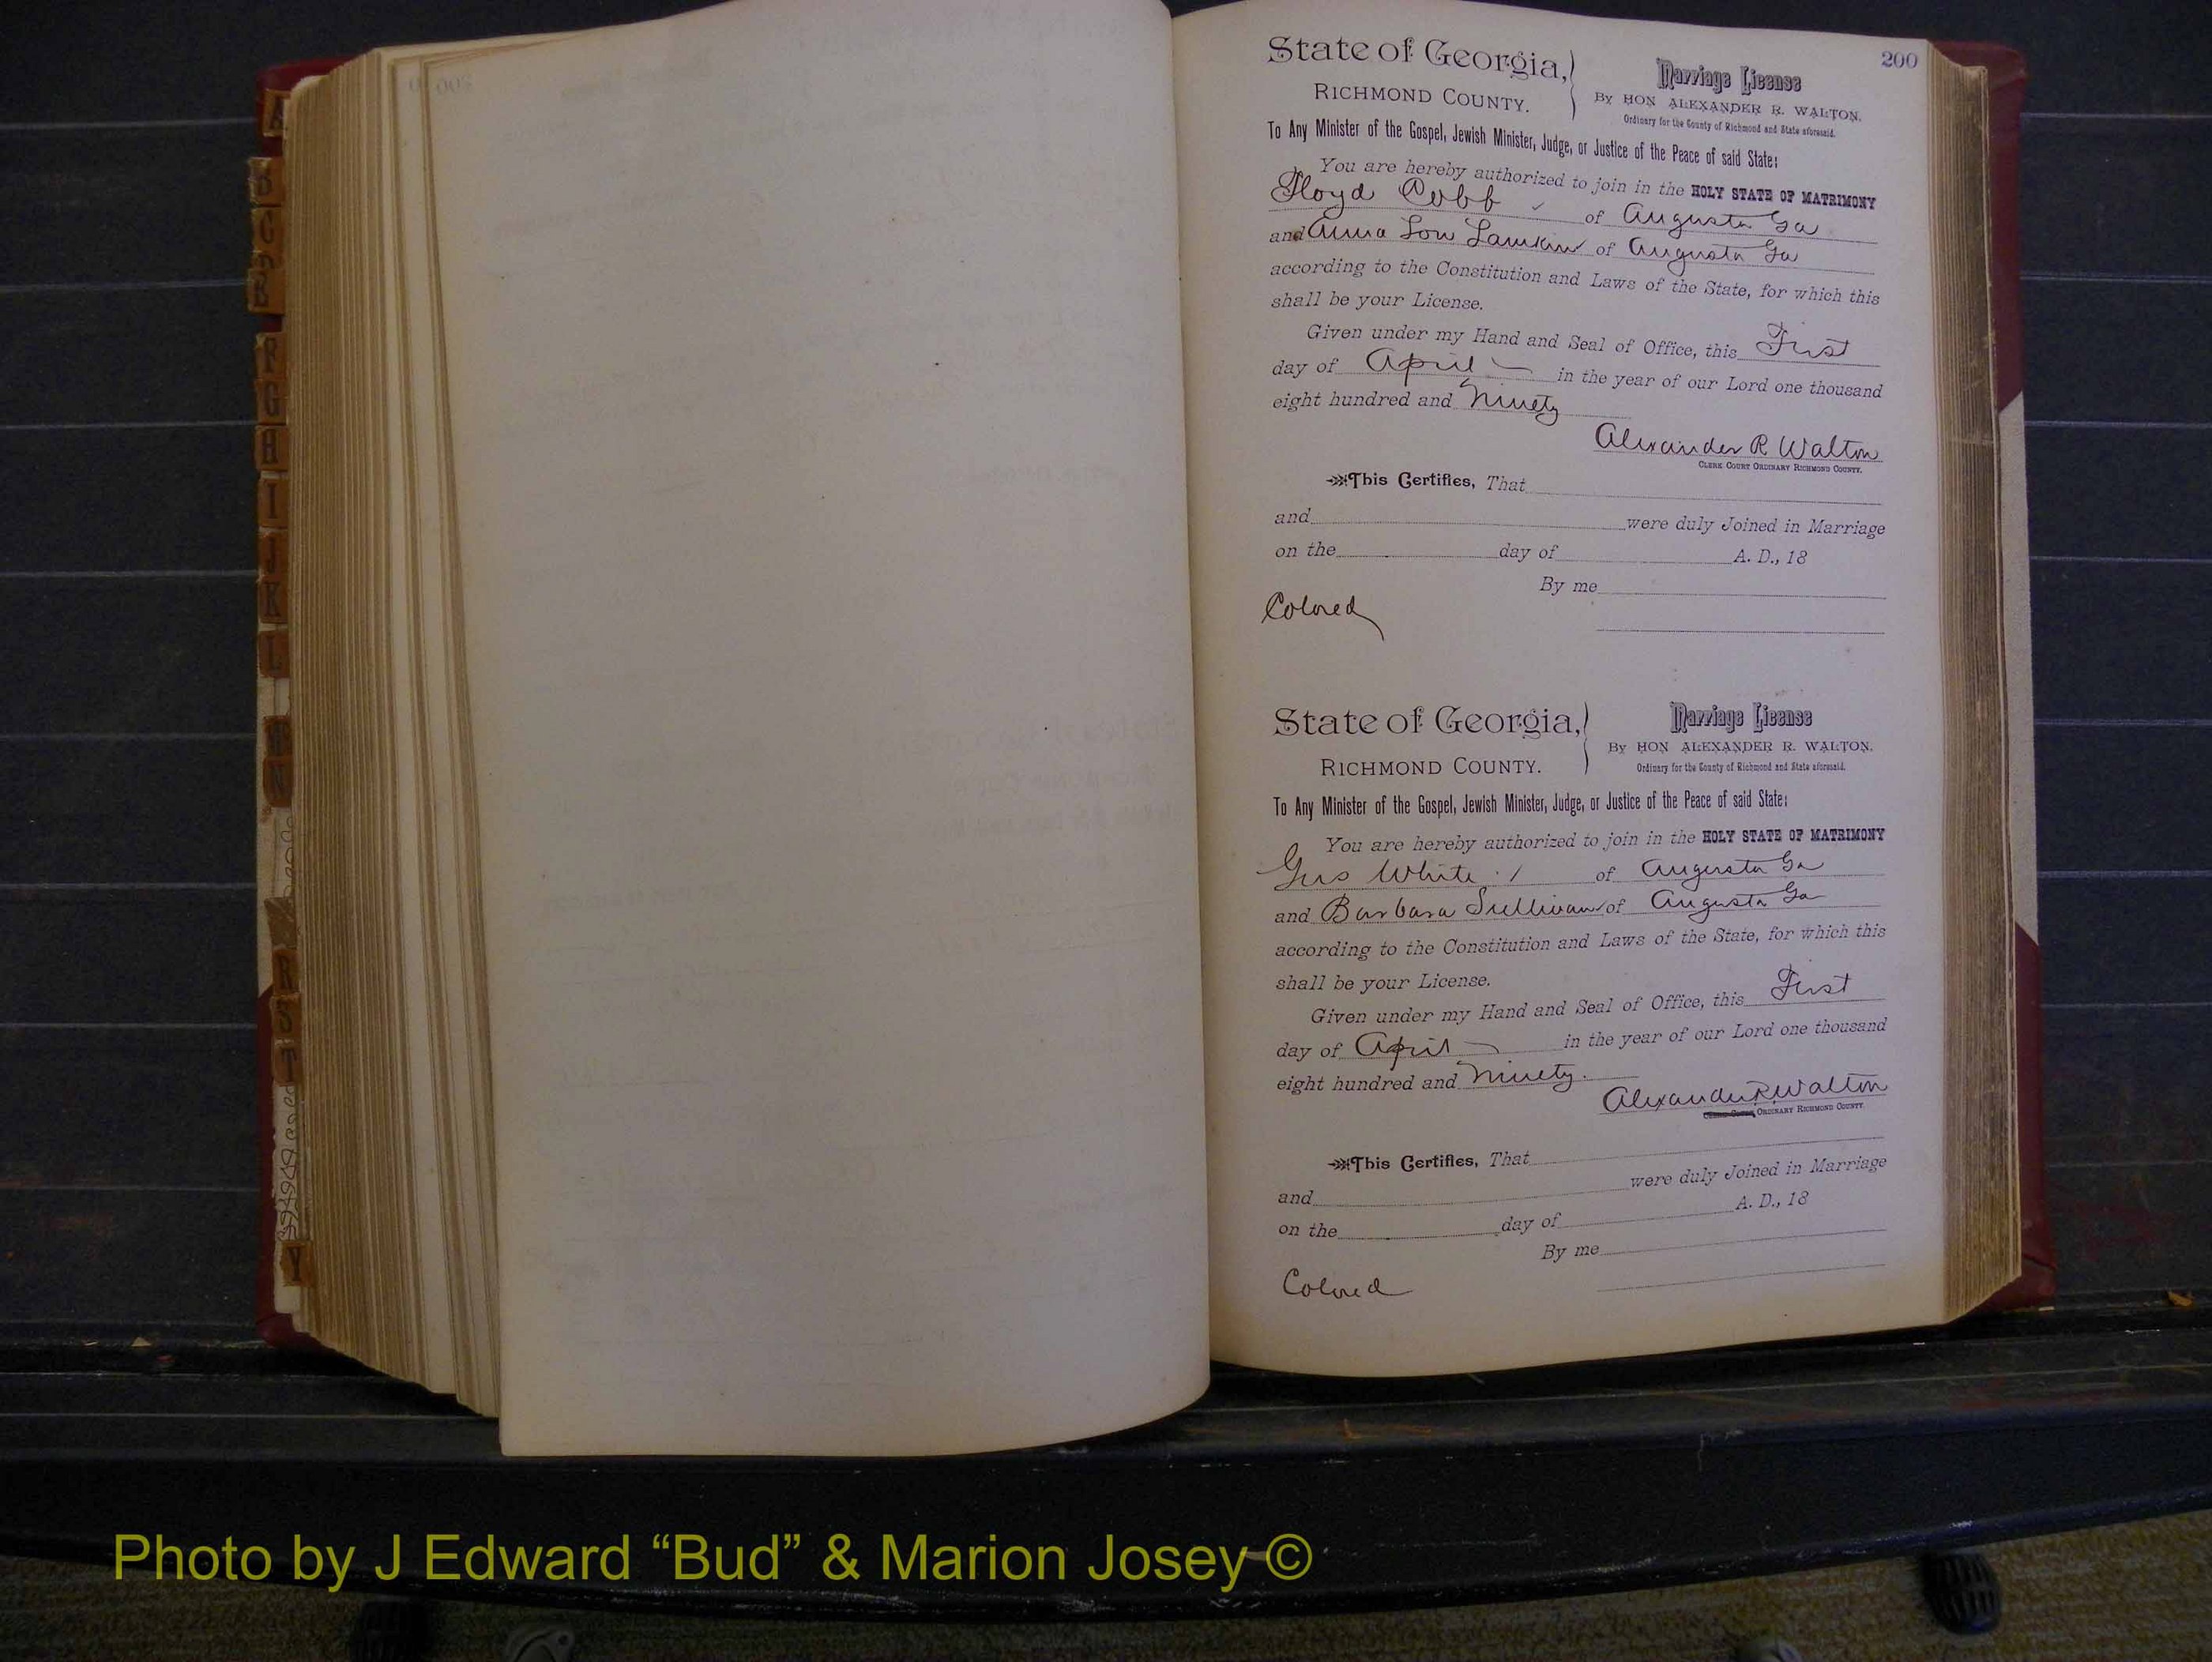 200
State of Georgia,
RICHMOND COUNTY.
Marriage License
By HON ALEXANDER R. WALTON.
Ordinary for the County of Richmond and State aforesaid.
To Any Minister of the Gospel, Jewish Minister, Judge, or Justice of the Peace of said State:
You are hereby authorized to join in the HOLY STATE OF MATRIMONY
Floyd Cobb of Augusta Ga
and Anna Lou Lamkin of Augusta Ga
according to the Constitution and Laws of the State, for which this
shall be your License.
Given under my Hand and Seal of Office, this First
day of April in the year of our Lord one thousand
eight hundred and Ninety
Alexander R Walton
CLERK COURT ORDINARY RICHMOND COUNTY.
This Certifies, That
and were duly Joined in Marriage
on the day of A. D., 18
By me
Colored
State of Georgia,
RICHMOND COUNTY.
Marriage License
By HON ALEXANDER R. WALTON.
Ordinary for the County of Richmond and State aforesaid.
To Any Minister of the Gospel, Jewish Minister, Judge, or Justice of the Peace of said State:
You are hereby authorized to join in the HOLY STATE OF MATRIMONY
Gus White of Augusta Ga
and Barbara Sullivan of Augusta Ga
according to the Constitution and Laws of the State, for which this
shall be your License.
Given under my Hand and Seal of Office, this First
day of April in the year of our Lord one thousand
eight hundred and Ninety.
Alexander R Walton
CLERK COURT ORDINARY RICHMOND COUNTY.
This Certifies, That
and were duly Joined in Marriage
on the day of A. D., 18
By me
Colored
B
F
G
H
I
J
K
L
N
R
S
T
Y
Photo by J Edward “Bud” & Marion Josey ©